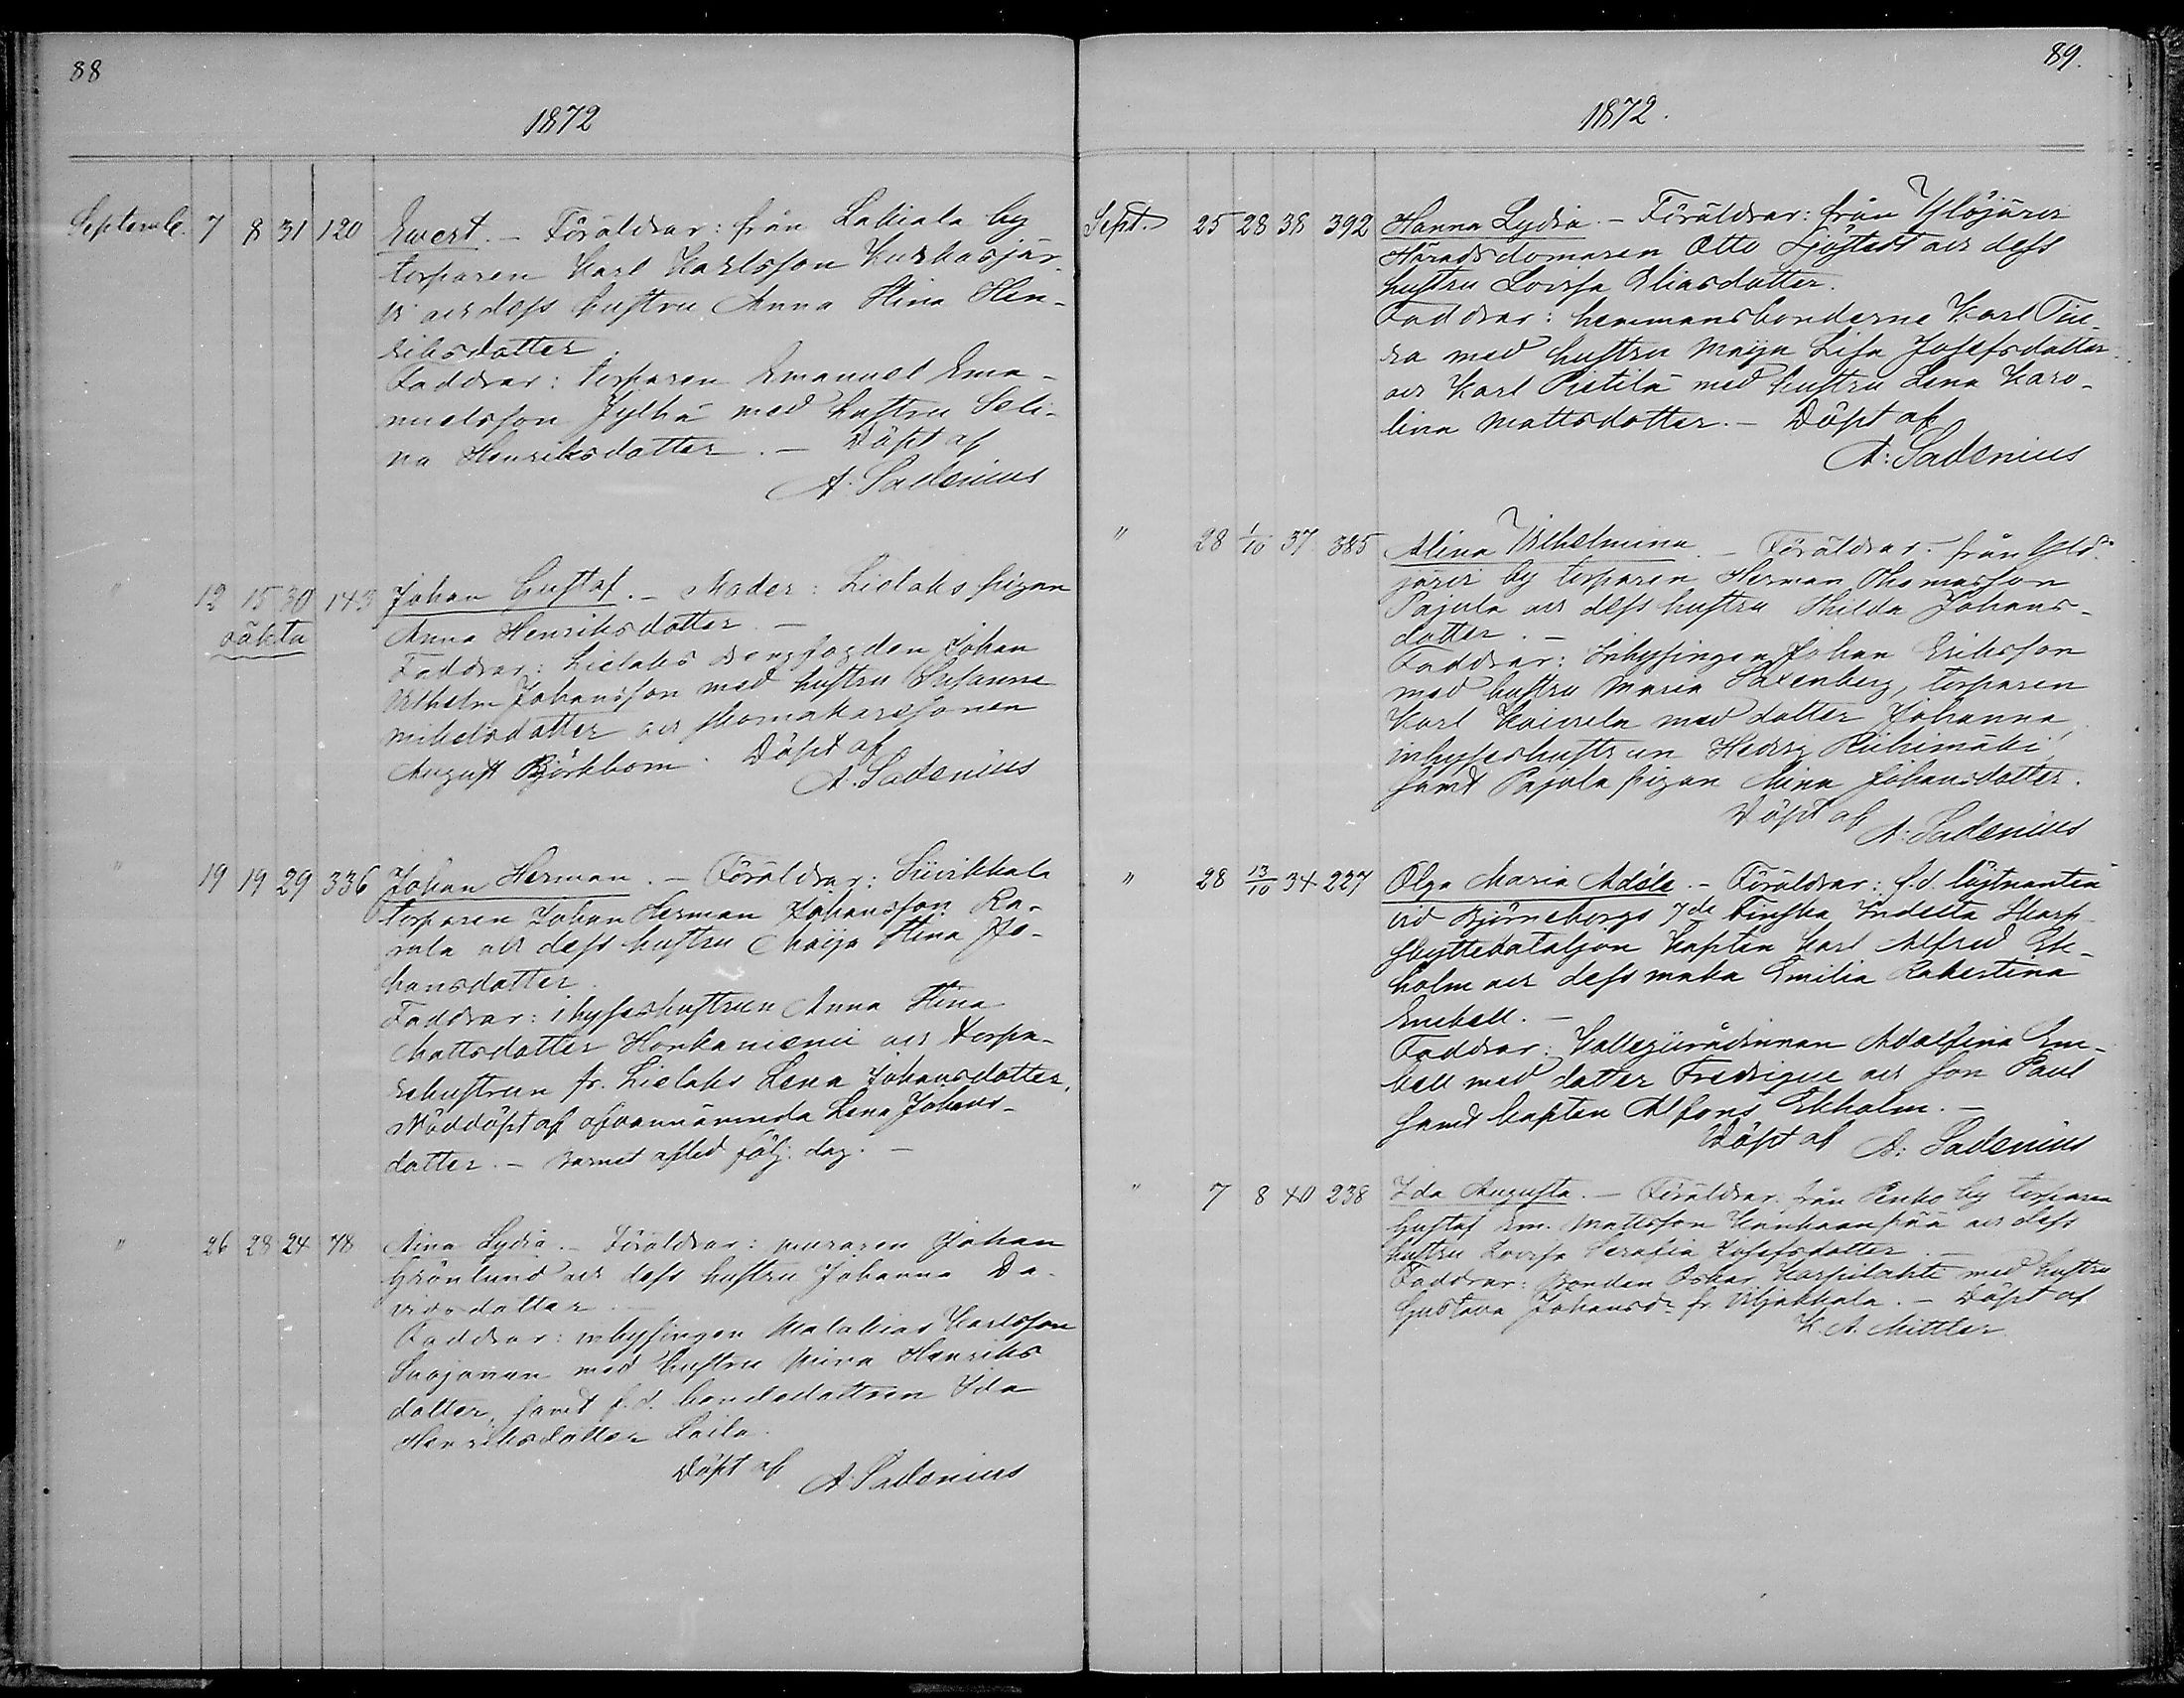 88
1872
Septemb. 7 8 31 120 Ewert. – Föräldrar: från Lakiala by
torparen Karl Karlsson Kurkasjär-
vi och dess hustru Anna Stina Hen-
riksdotter.
Faddrar: torparen Emanuel Ema-
nuelsson Jylhä med hustru Seli-
na Henriksdotter. – Döpt af
A. Sadenius
" 12 15 30 143 Johan Gustaf. – Moder: Lielaks pigan
oäkta Anna Henriksdotter. –
Faddrar: Lielaks drengfogden Johan
Wilhelm Johansson med hustru Susanna
Mikelsdotter och skomakaresonen
August Björkbom. Döpt af
A. Sadenius
" 19 19 29 336 Johan Herman. – Föräldrar: Siivikkala
torparen Johan Herman Johansson Ra-
mla och dess hustru Maija Stina Jo-
hansdotter.
Faddrar: ihyseshustrun Anna Stina
Mattsdotter Honkaniemi och torpa-
rehustrun fr. Lielaks Lena Johansdotter.
Nöddöpt af ofvannämnda Lena Johans-
dotter. – Barnet afled följ. dag. –
" 26 28 24 78 Aina Lydia. – Föräldrar: muraren Johan
Grönlund och dess hustru Johanna Da-
vidsdotter. –
Faddrar: inhysingen Malakias Karlsson
Suojanen med hustru Mina Henriks
dotter, samt f.d. bondedottren Ida
Henriksdotter Laila.
Döpt af A. Sadenius
89.
1872.
Sept. 25 28 38 392 Hanna Lydia. – Föräldrar: från Ylöjärvi
Häradsdomaren Otto Sjöstedt och dess
hustru Lovisa Eliasdotter.
Faddrar: hemmansbönderne Karl Tiu-
ra med hustru Maija Lisa Josefsdotter
och Karl Pietilä med hustru Lena Karo-
lina Mattsdotter. – Döpt af
A: Sadenius
" 28 1/10 37 385 Alina Wilhelmina. – Föräldrar: från Ylö-
järvi by torparen Herman Thomasson
Pajula och dess hustru Hilda Johans-
dotter. –
Faddrar: Inhysingen Johan Eriksson
med hustru Maria Saxenberg, torparen
Karl Koivula med dotter Johanna,
inhyseshustrun Hedvig Riihimäki,
samt Pajula pigan Mina Johansdotter.
Döpt af A. Sadenius
" 28 13/10 34 227 Olga Maria Adéle. – Föräldrar: f.d. löjtnanten
vid Björneborgs 7de Finska Indelta Skarp
skyttebataljon Kapten Karl Alfred Ek-
holm och dess maka Emilia Robertina
Enebell. –
Faddrar: Kollegiirådinnan Adolfina Ene-
bell med dotter Fredrique och son Paul
samt kapten Alfons Ekholm. –
Döpt af A: Sadenius
" 7 8 40 238 Ida Augusta. – Föräldrar: från Penko by torparen
Gustaf Em. Mattsson Kankaanpää och dess
hustru Lovisa Serafia Josefsdotter. –
Faddrar: Bonden Oskar Karpilahti med hustru
Gustava Johansdr fr. Viljakkala. – Döpt af
K. A. Mittler